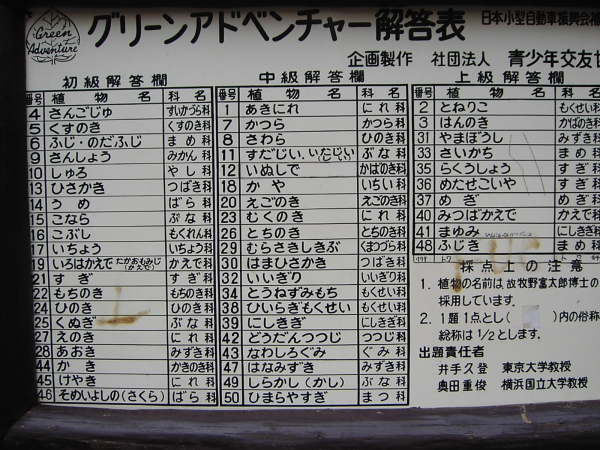 Green Adventure
グリーンアドベンチャー解答表
日本小型自動車振興会補
企画製作 社団法人 青少年交友
初級解答欄
番号 植物名 科名
4 さんごじゅ すいかずら科
5 くすのき くすのき科
6 ふじ・のだふじ まめ科
9 さんしょう みかん科
10 しゅろ やし科
13 ひさかき つばき科
14 うめ ばら科
15 こなら ぶな科
16 こぶし もくれん科
17 いちょう いちょう科
19 いろはかえで たかおもみじ(かえで) かえで科
21 すぎ すぎ科
22 もちのき もちのき科
24 ひのき ひのき科
25 くぬぎ ぶな科
27 えのき にれ科
28 あおき みずき科
44 かき かきのき科
45 けやき にれ科
46 そめいよしの(さくら) ばら科
中級解答欄
番号 植物名 科名
1 あきにれ にれ科
7 かつら かつら科
8 さわら ひのき科
11 すだじい、いたじい ぶな科
12 いぬしで かばのき科
18 かや いちい科
20 えごのき えごのき科
23 むくのき にれ科
26 とちのき とちのき科
29 むらさきしきぶ くまつづら科
30 はまひさかき つばき科
32 いいぎり いいぎり科
34 とうねずみもち もくせい科
38 ひいらぎもくせい もくせい科
39 にしきぎ にしきぎ科
42 どうだんつつじ つつじ科
43 なわしろぐみ ぐみ科
47 はなみずき みずき科
49 しらかし(かし) ぶな科
50 ひまらやすぎ まつ科
上級解答欄
番号 植物名 科名
2 とねりこ もくせい科
3 はんのき かばのき科
31 やまぼうし みずき科
33 さいかち まめ科
35 らくうしょう すぎ科
36 めたせこいや すぎ科
37 めぎ めぎ科
40 みつばかえで かえで科
41 まゆみ にしきぎ科
48 ふじき まめ科
採点上の注意
1. 植物の名前は故牧野富太郎博士の
採用しています。
2. 1題1点とし( )内の俗称
総称は1/2とします。
出題責任者
井手久登 東京大学教授
奥田重俊 横浜国立大学教授